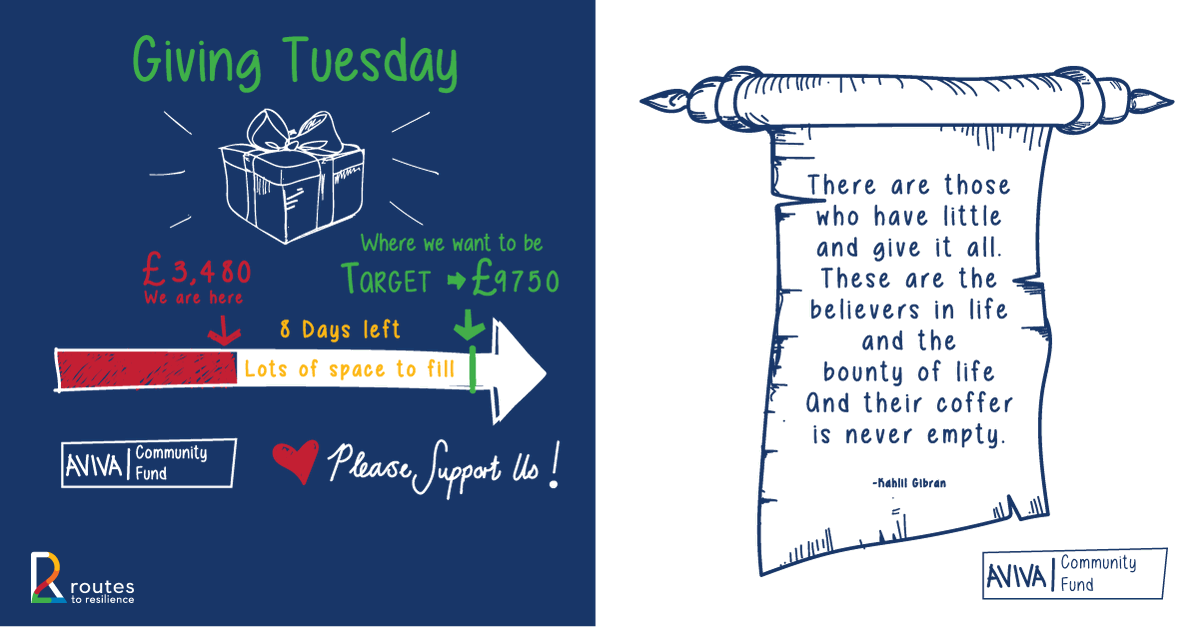 Giving Tuesday
£3,480
We are here
Where we want to be
TARGET ➡ £9750
8 Days left
Lots of space to fill
AVIVA | Community
Fund
Please Support Us!
routes
to resilience
There are those
who have little
and give it all.
These are the
believers in life
and the
bounty of life
And their coffer
is never empty.
-Kahlil Gibran
AVIVA | Community
Fund